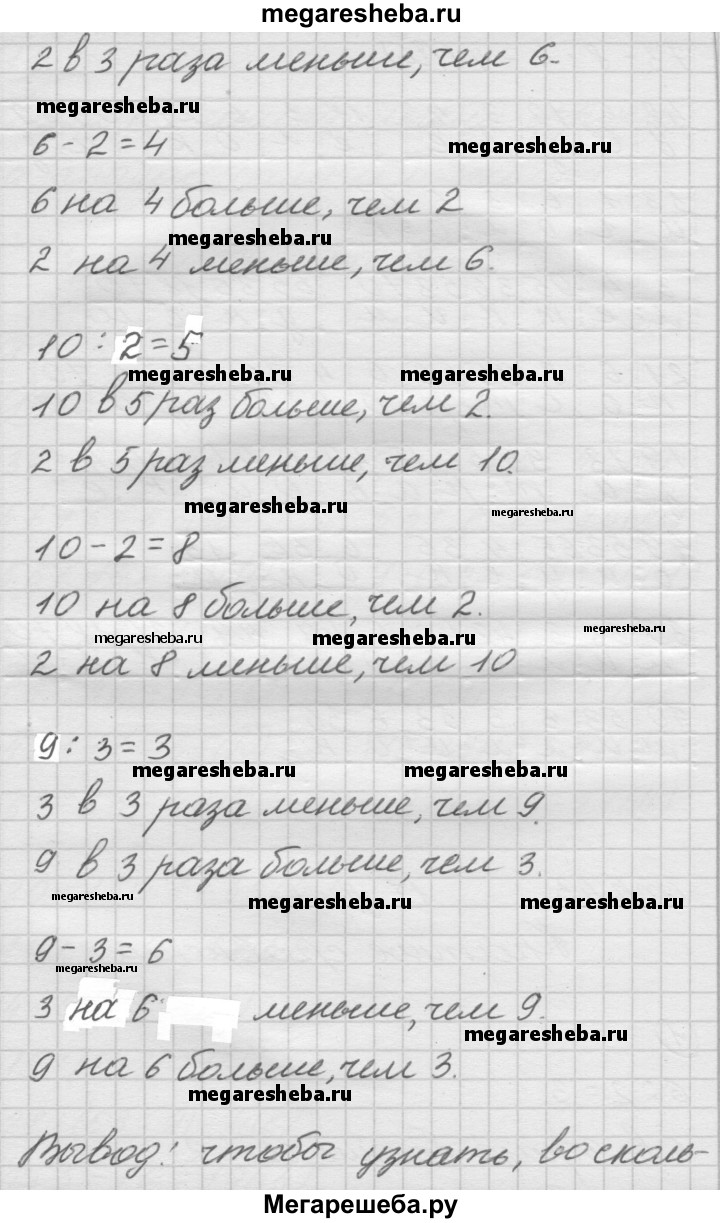 megaresheba.ru
2 в 3 раза меньше, чем 6.
megaresheba.ru
6 - 2 = 4
megaresheba.ru
6 на 4 больше, чем 2
megaresheba.ru
2 на 4 меньше, чем 6.
10 : 2 = 5
megaresheba.ru megaresheba.ru
10 в 5 раз больше, чем 2.
2 в 5 раз меньше, чем 10.
megaresheba.ru megaresheba.ru
10 - 2 = 8
10 на 8 больше, чем 2.
megaresheba.ru megaresheba.ru megaresheba.ru
2 на 8 меньше, чем 10
9 : 3 = 3
megaresheba.ru megaresheba.ru
3 в 3 раза меньше, чем 9.
9 в 3 раза больше, чем 3.
megaresheba.ru megaresheba.ru megaresheba.ru
9 - 3 = 6
megaresheba.ru
3 на 6 меньше, чем 9.
megaresheba.ru
9 на 6 больше, чем 3.
megaresheba.ru
Вывод: чтобы узнать, во сколь-
Мегарешеба.ру